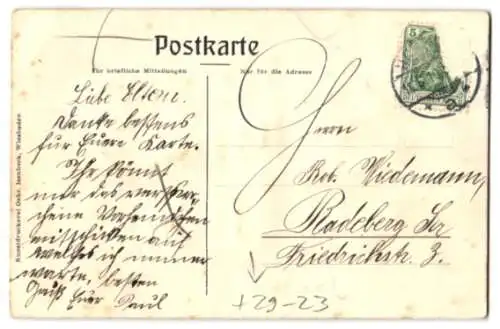 Postkarte
Für briefliche Mitteilungen
Nur für die Adresse
5
Liebe Eltern.
Danke bestens
für Euere Karte.
Ihr könnt
mir das verspro-
chene Vorhemdchen
mitschicken auf
welches ich immer
warte, besten
Gruß Euer Paul
Herrn
Rob. Wiedemann,
Radeberg Sr
Friedrichstr. 2.
+29-23
Kunstdruckerei Gebr. Isenbeck, Wiesbaden